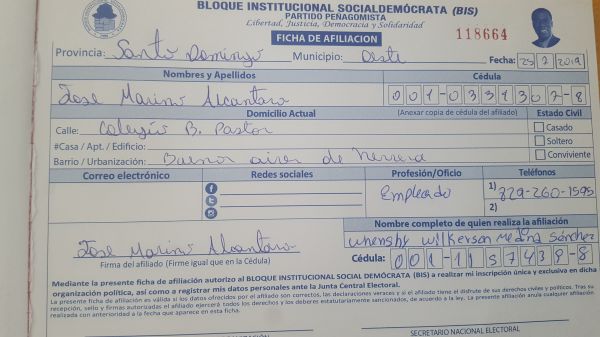 BLOQUE INSTITUCIONAL SOCIALDEMÓCRATA (BIS)
PARTIDO PEÑAGOMISTA
Libertad, Justicia, Democracia y Solidaridad
FICHA DE AFILIACION
118664
Provincia: Santo Domingo Municipio: Oeste Fecha: 25 2 2019
Nombres y Apellidos Cédula
Jose Marino Alcantara 001-0339302-8
Domicilio Actual (Anexar copia de cédula del afiliado) Estado Civil
Calle: Colegio B. Pastor Casado
#Casa / Apt. / Edificio: Soltero
Barrio / Urbanización: Buenos aires de Herrera Conviviente
Correo electrónico Redes sociales Profesión/Oficio Teléfonos
Empleado 1) 829-260-1595
2)
Nombre completo de quien realiza la afiliación
Jose Marino Alcantara Whensky Wilkerson Medina Sánchez
Firma del afiliado (Firme igual que en la Cédula) Cédula: 001-1157438-8
Mediante la presente ficha de afiliación autorizo al BLOQUE INSTITUCIONAL SOCIAL DEMÓCRATA (BIS) a realizar mi inscripción única y exclusiva en dicha
organización política, así como a registrar mis datos personales ante la Junta Central Electoral.
La presente ficha de afiliación es válida si los datos ofrecidos por el afiliado son correctos, las declaraciones veraces y si el afiliado tiene el disfrute de sus derechos civiles y políticos. Tras su
recepción, sello y firmas autorizadas el afiliado ejercerá todos los derechos y los deberes estatutariamente sancionados, de acuerdo a la ley. La presente afiliación anula cualquier afiliación
realizada con anterioridad a la fecha que aparece en esta ficha.
SECRETARIO NACIONAL ELECTORAL